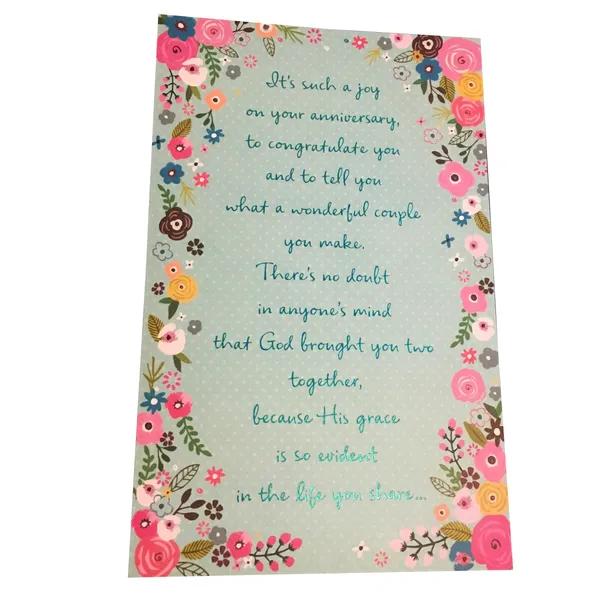 It's such a joy
on your anniversary,
to congratulate you
and to tell you
what a wonderful couple
you make.
There's no doubt
in anyone's mind
that God brought you two
together,
because His grace
is so evident
in the life you share...